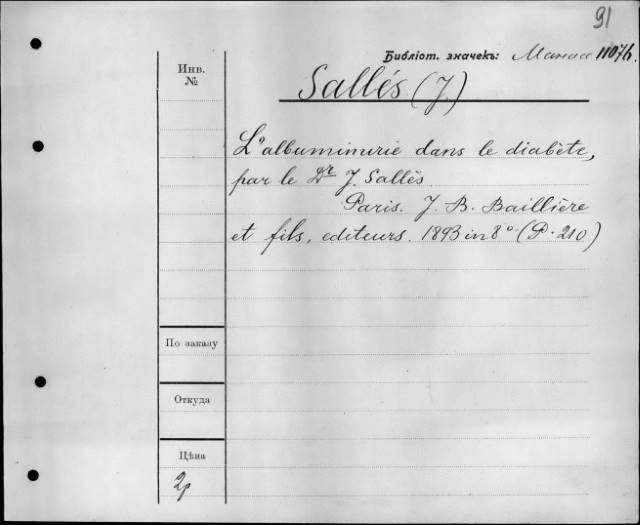 91
Библіот. значекъ: Манасс 11076.
Инв.
№
Sallés (J.)
L'albuminurie dans le diabète,
par le Dr J. Sallés
Paris. J. B. Baillière
et fils, editeurs. 1893 in 8° (P. 210)
По заказу
Откуда
Цѣна
2р